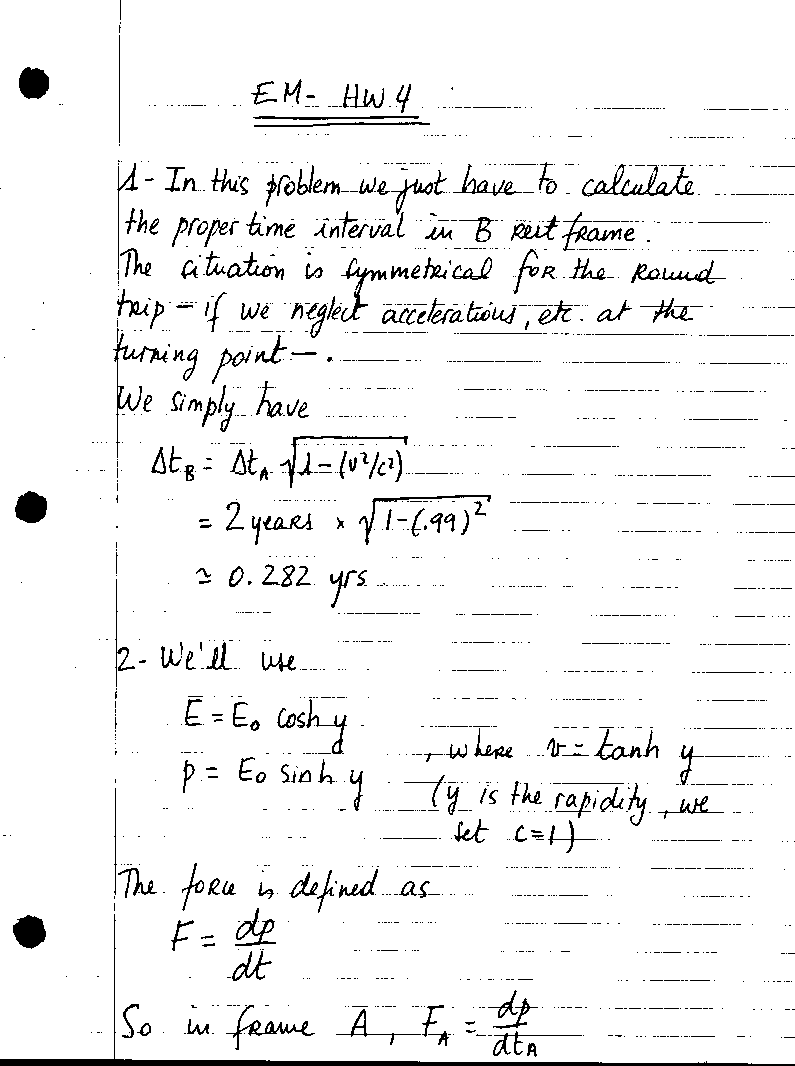 EM- HW 4
1- In this problem we just have to calculate
the proper time interval in B rest frame.
The situation is symmetrical for the round
trip – if we neglect accelerations, etc. at the
turning point – .
We simply have
Δt_B = Δt_A √(1 - (v²/c²))
= 2 years × √(1-(.99)²)
≃ 0.282 yrs
2- We'll use
E = E₀ cosh y
, where v = tanh y
p = E₀ sinh y
(y is the rapidity, we
set c=1)
The force is defined as
F = dp/dt
So in frame A, F_A = dp/dt_A